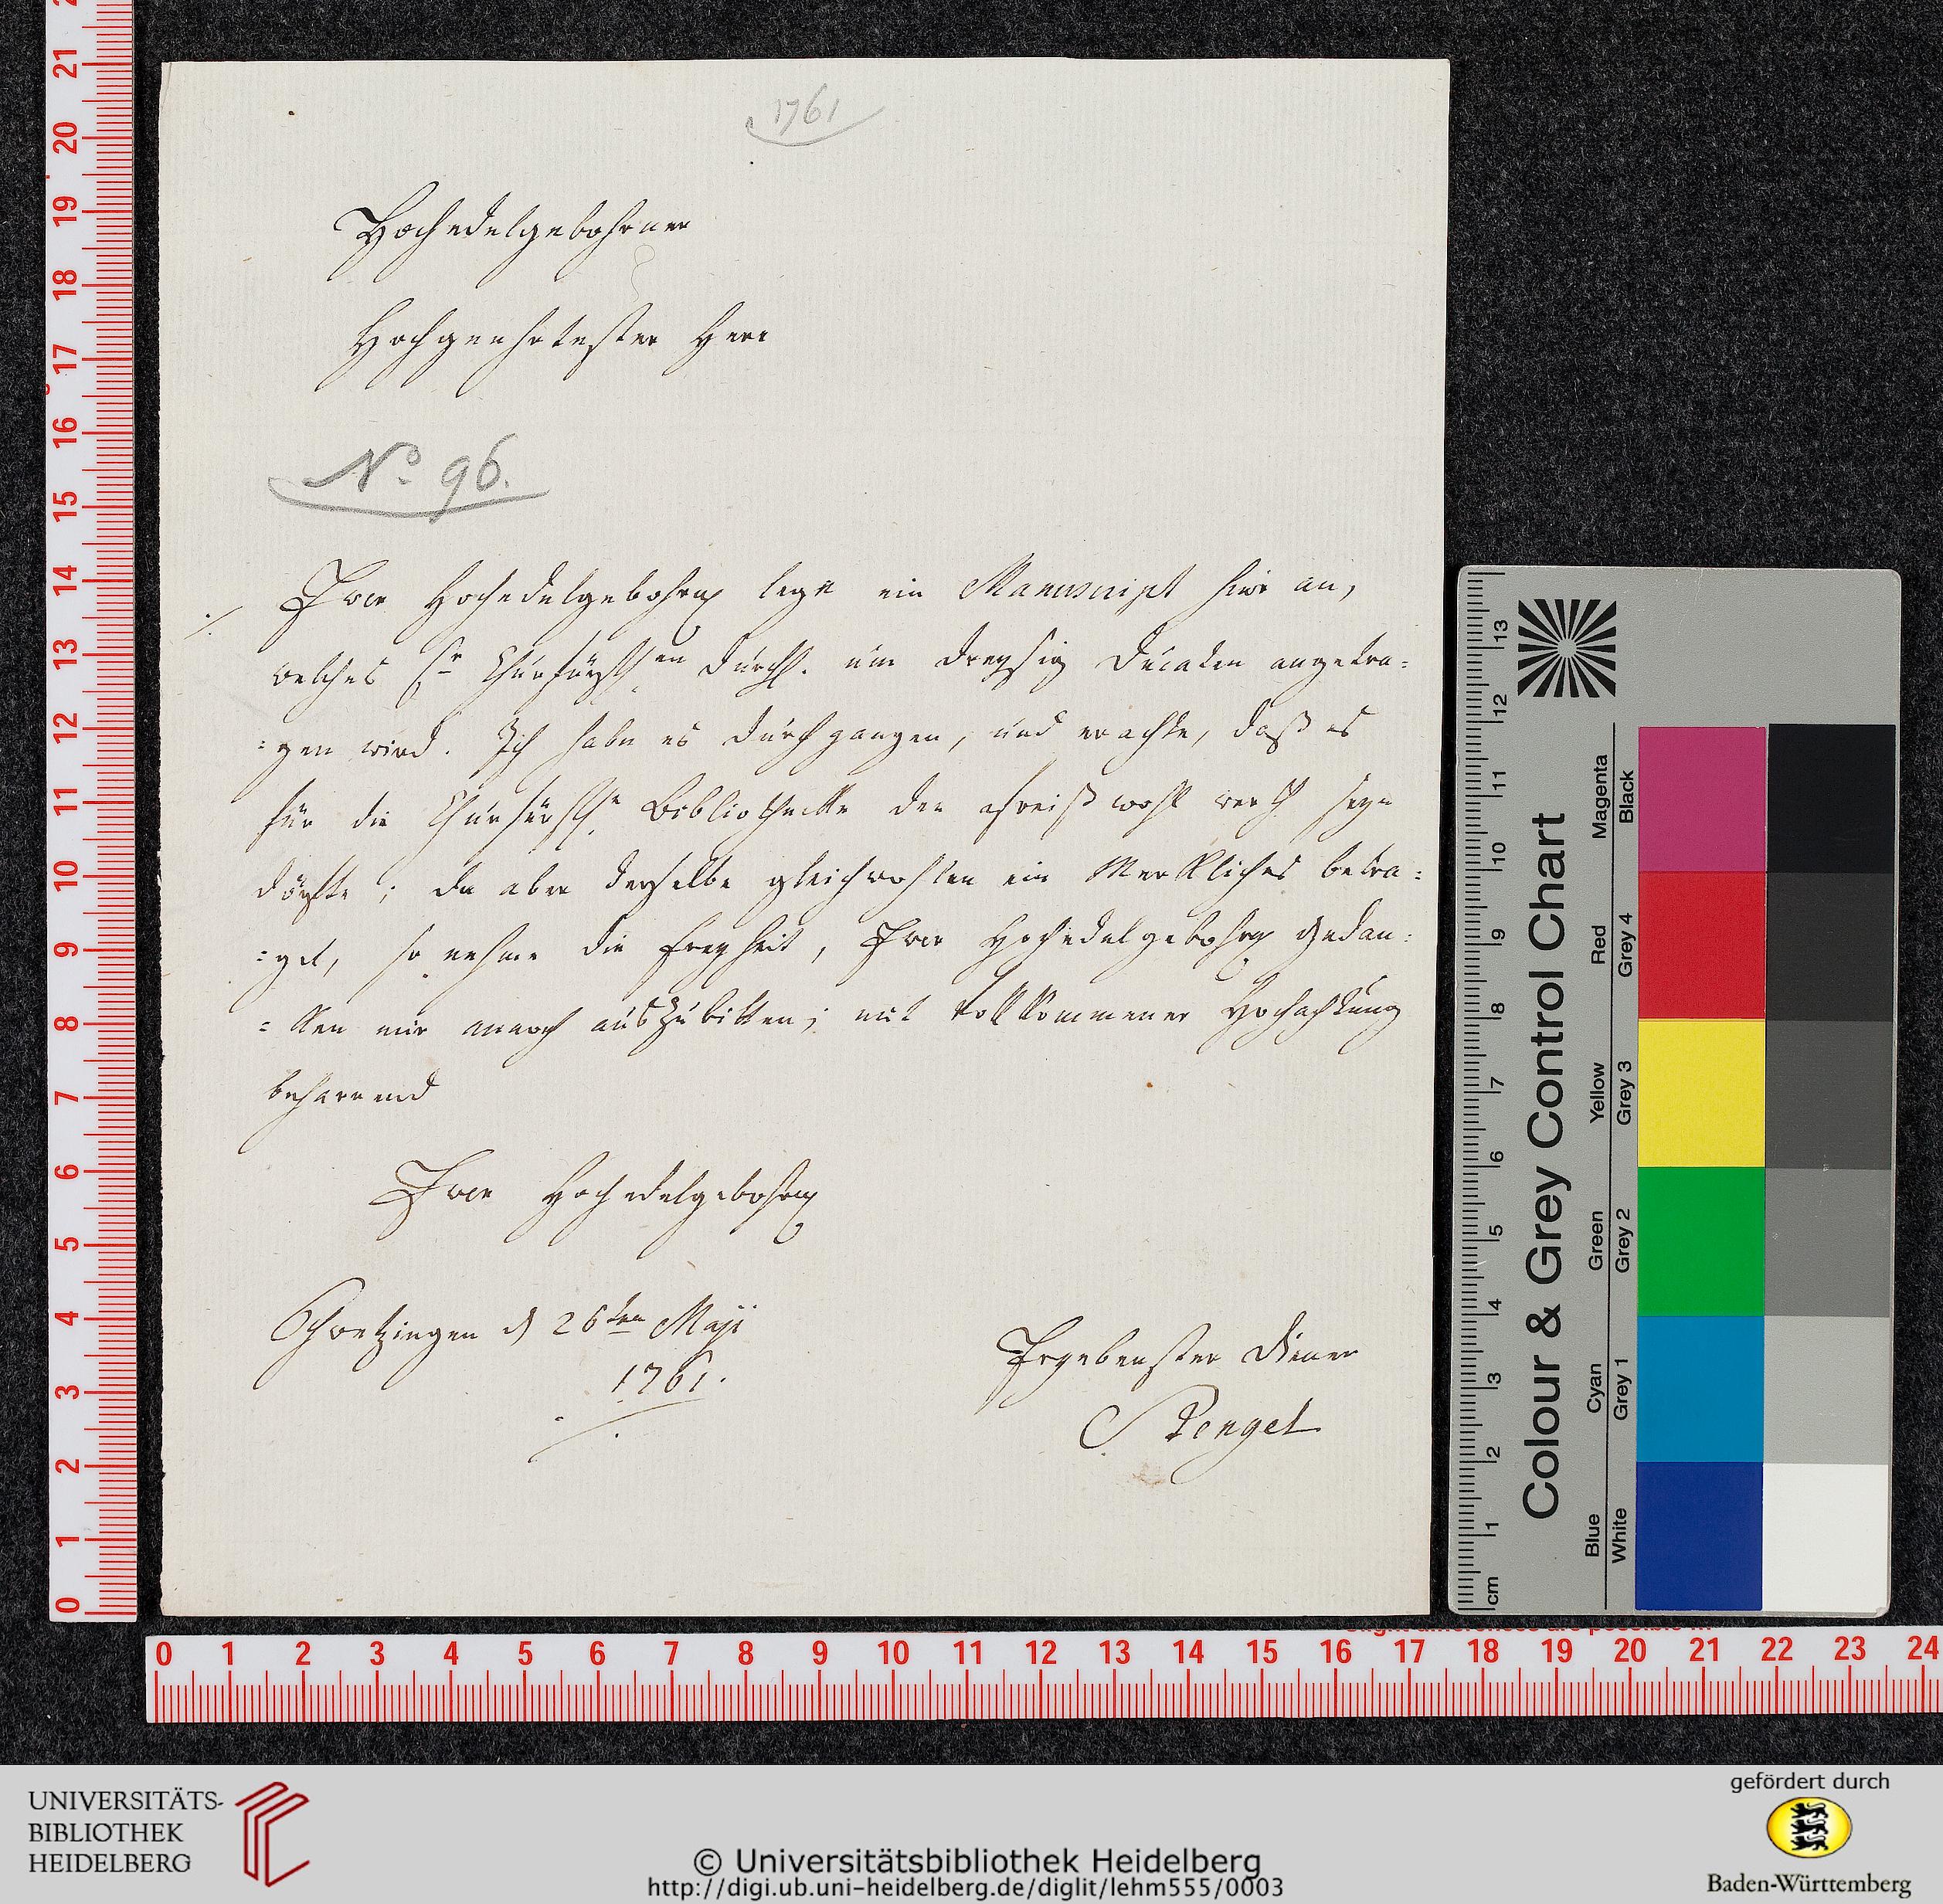 1761
Hochedelgebohrner
Hochgeehrtester Herr
No 96.
Euer Hochedelgebohrn lege ein Manuscript hier an,
welches Sr Churfürstlen Durchl. um dreysig Ducaten angetra=
=gen wird. Ich habe es durchgangen, und erachte, daß es
für die Churfürstle Bibliothecke den Preiß wohl werth seyn
dörfte; da aber derselbe gleichwohlen ein Merkliches betra=
=get, so nehme die Freyheit, Euer Hochedelgebohrn Gedan=
=ken mir annoch auszubitten; mit vollkommener Hochachtung
beharrend
Euer Hochedelgebohrn
Schwetzingen d 26ten Maji
1761.
Ergebenster Diener
Stengel
Colour & Grey Control Chart
Magenta
Red
Yellow
Green
Cyan
Blue
Black
Grey 4
Grey 3
Grey 2
Grey 1
White
cm 1 2 3 4 5 6 7 8 9 10 11 12 13
0 1 2 3 4 5 6 7 8 9 10 11 12 13 14 15 16 17 18 19 20 21
0 1 2 3 4 5 6 7 8 9 10 11 12 13 14 15 16 17 18 19 20 21 22 23 24
UNIVERSITÄTS-
BIBLIOTHEK
HEIDELBERG
© Universitätsbibliothek Heidelberg
http://digi.ub.uni-heidelberg.de/diglit/lehm555/0003
gefördert durch
Baden-Württemberg